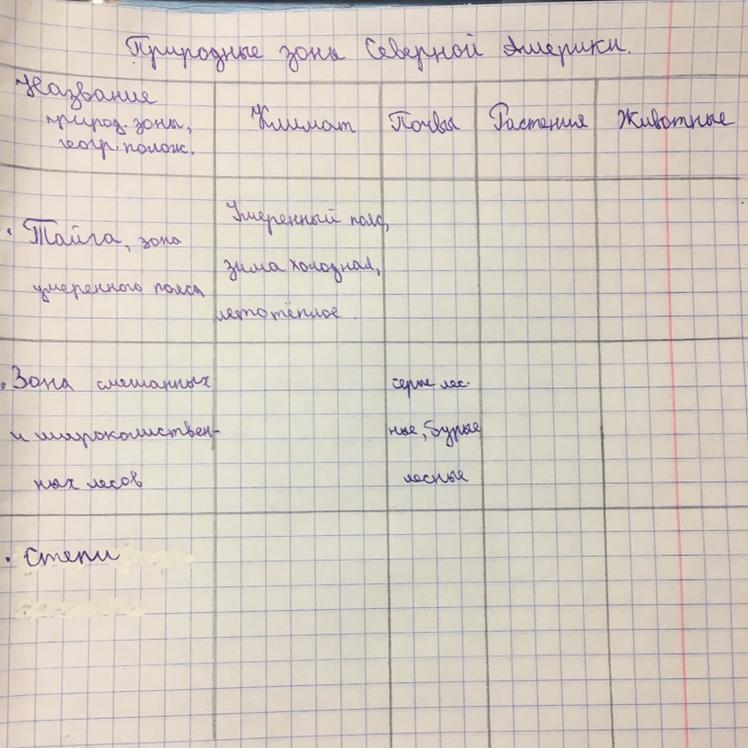 Природные зоны Северной Америки.
Название
природ. зоны,
геогр. полож.
Климат
Почвы
Растения
Животные
Тайга, зона
умеренного пояса
Умеренный пояс,
зима холодная,
лето тёплое.
Зона смешанных
и широколиствен-
ных лесов
серые лес-
ные, бурые
лесные
Степи